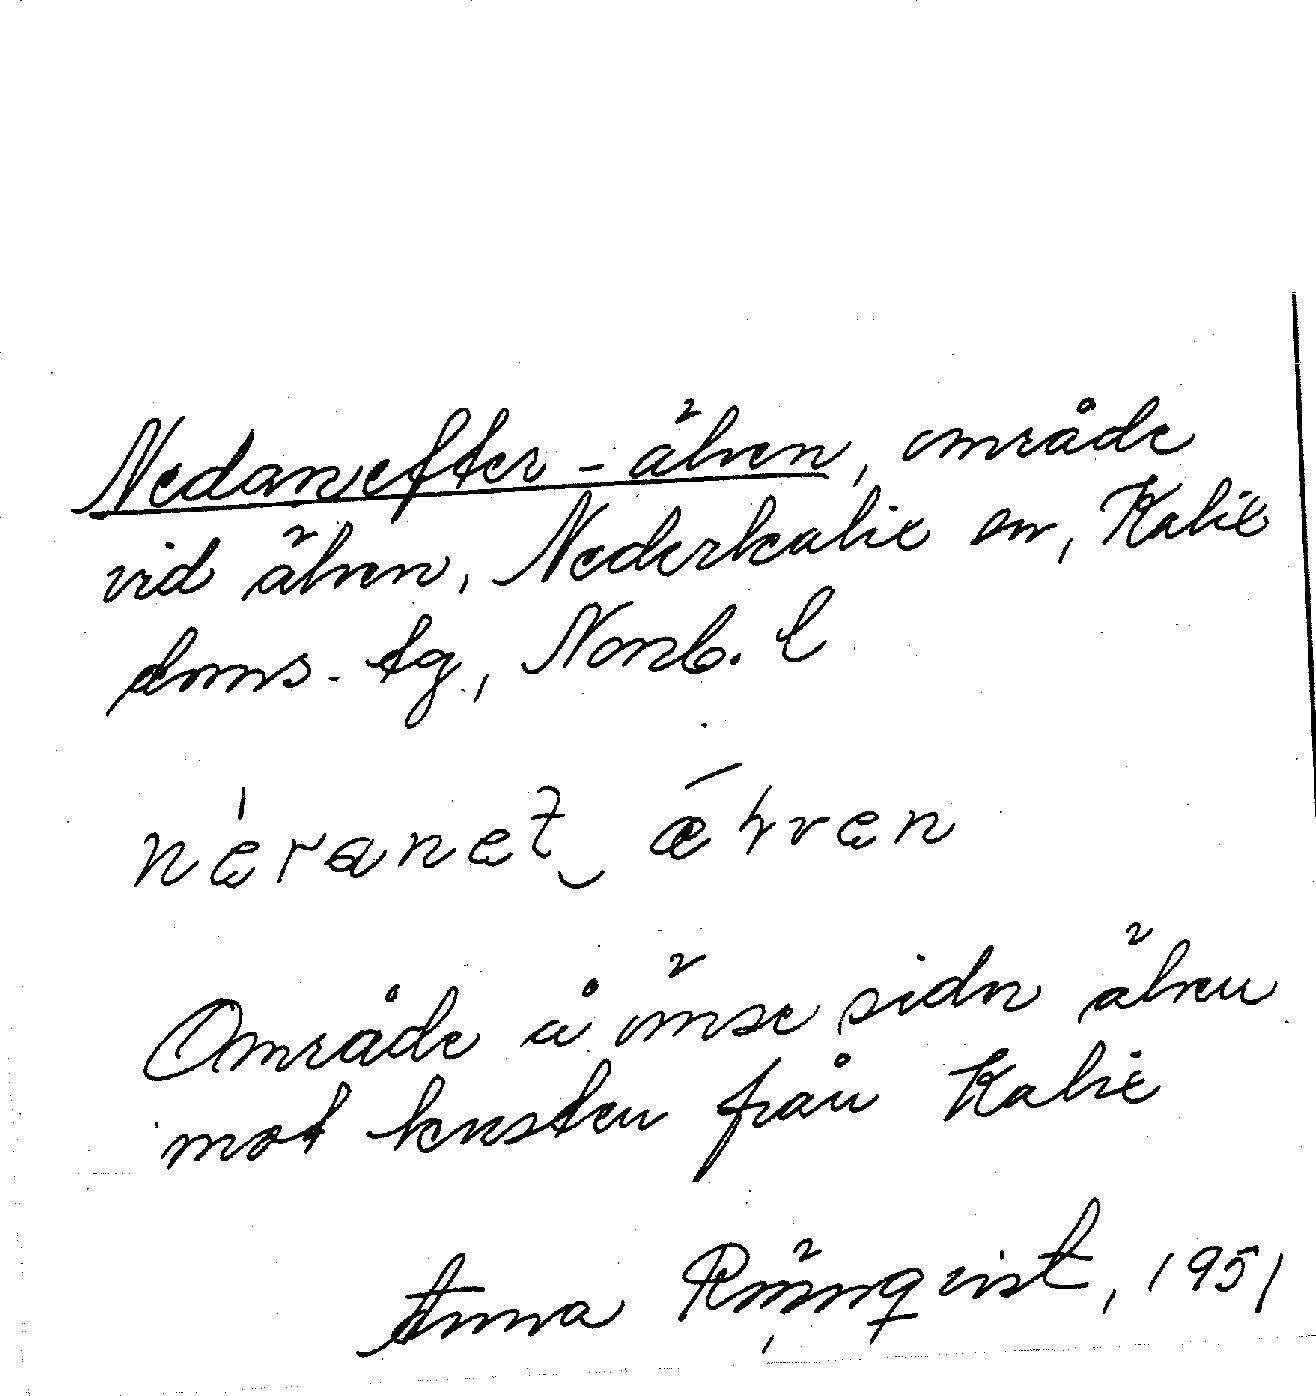 Nedanefter-älven, område
vid älven, Nederkalix sn, Kalix
doms. tg, Norrb. l
Område å ömse sidor älven
mot kusten från Kalix
Anna Rönnqvist, 1951